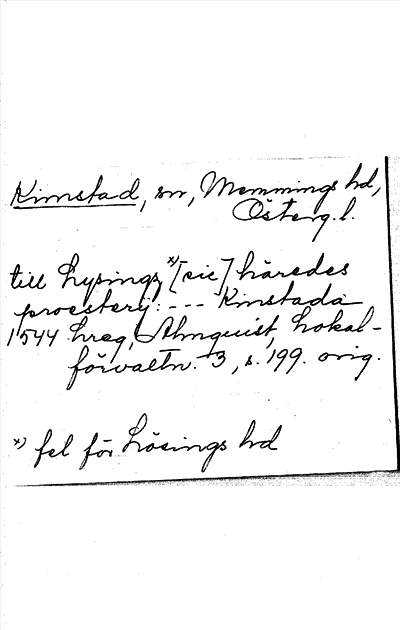 Kimstad, sn, Memmings hd,
Österg. l.
till Lysings x) [sic] häredes
proesterij: --- Kimstada
1544 hreg, Almquist, Lokal-
förvaltn. 3, s. 199. orig.
x) fel för Lösings hd